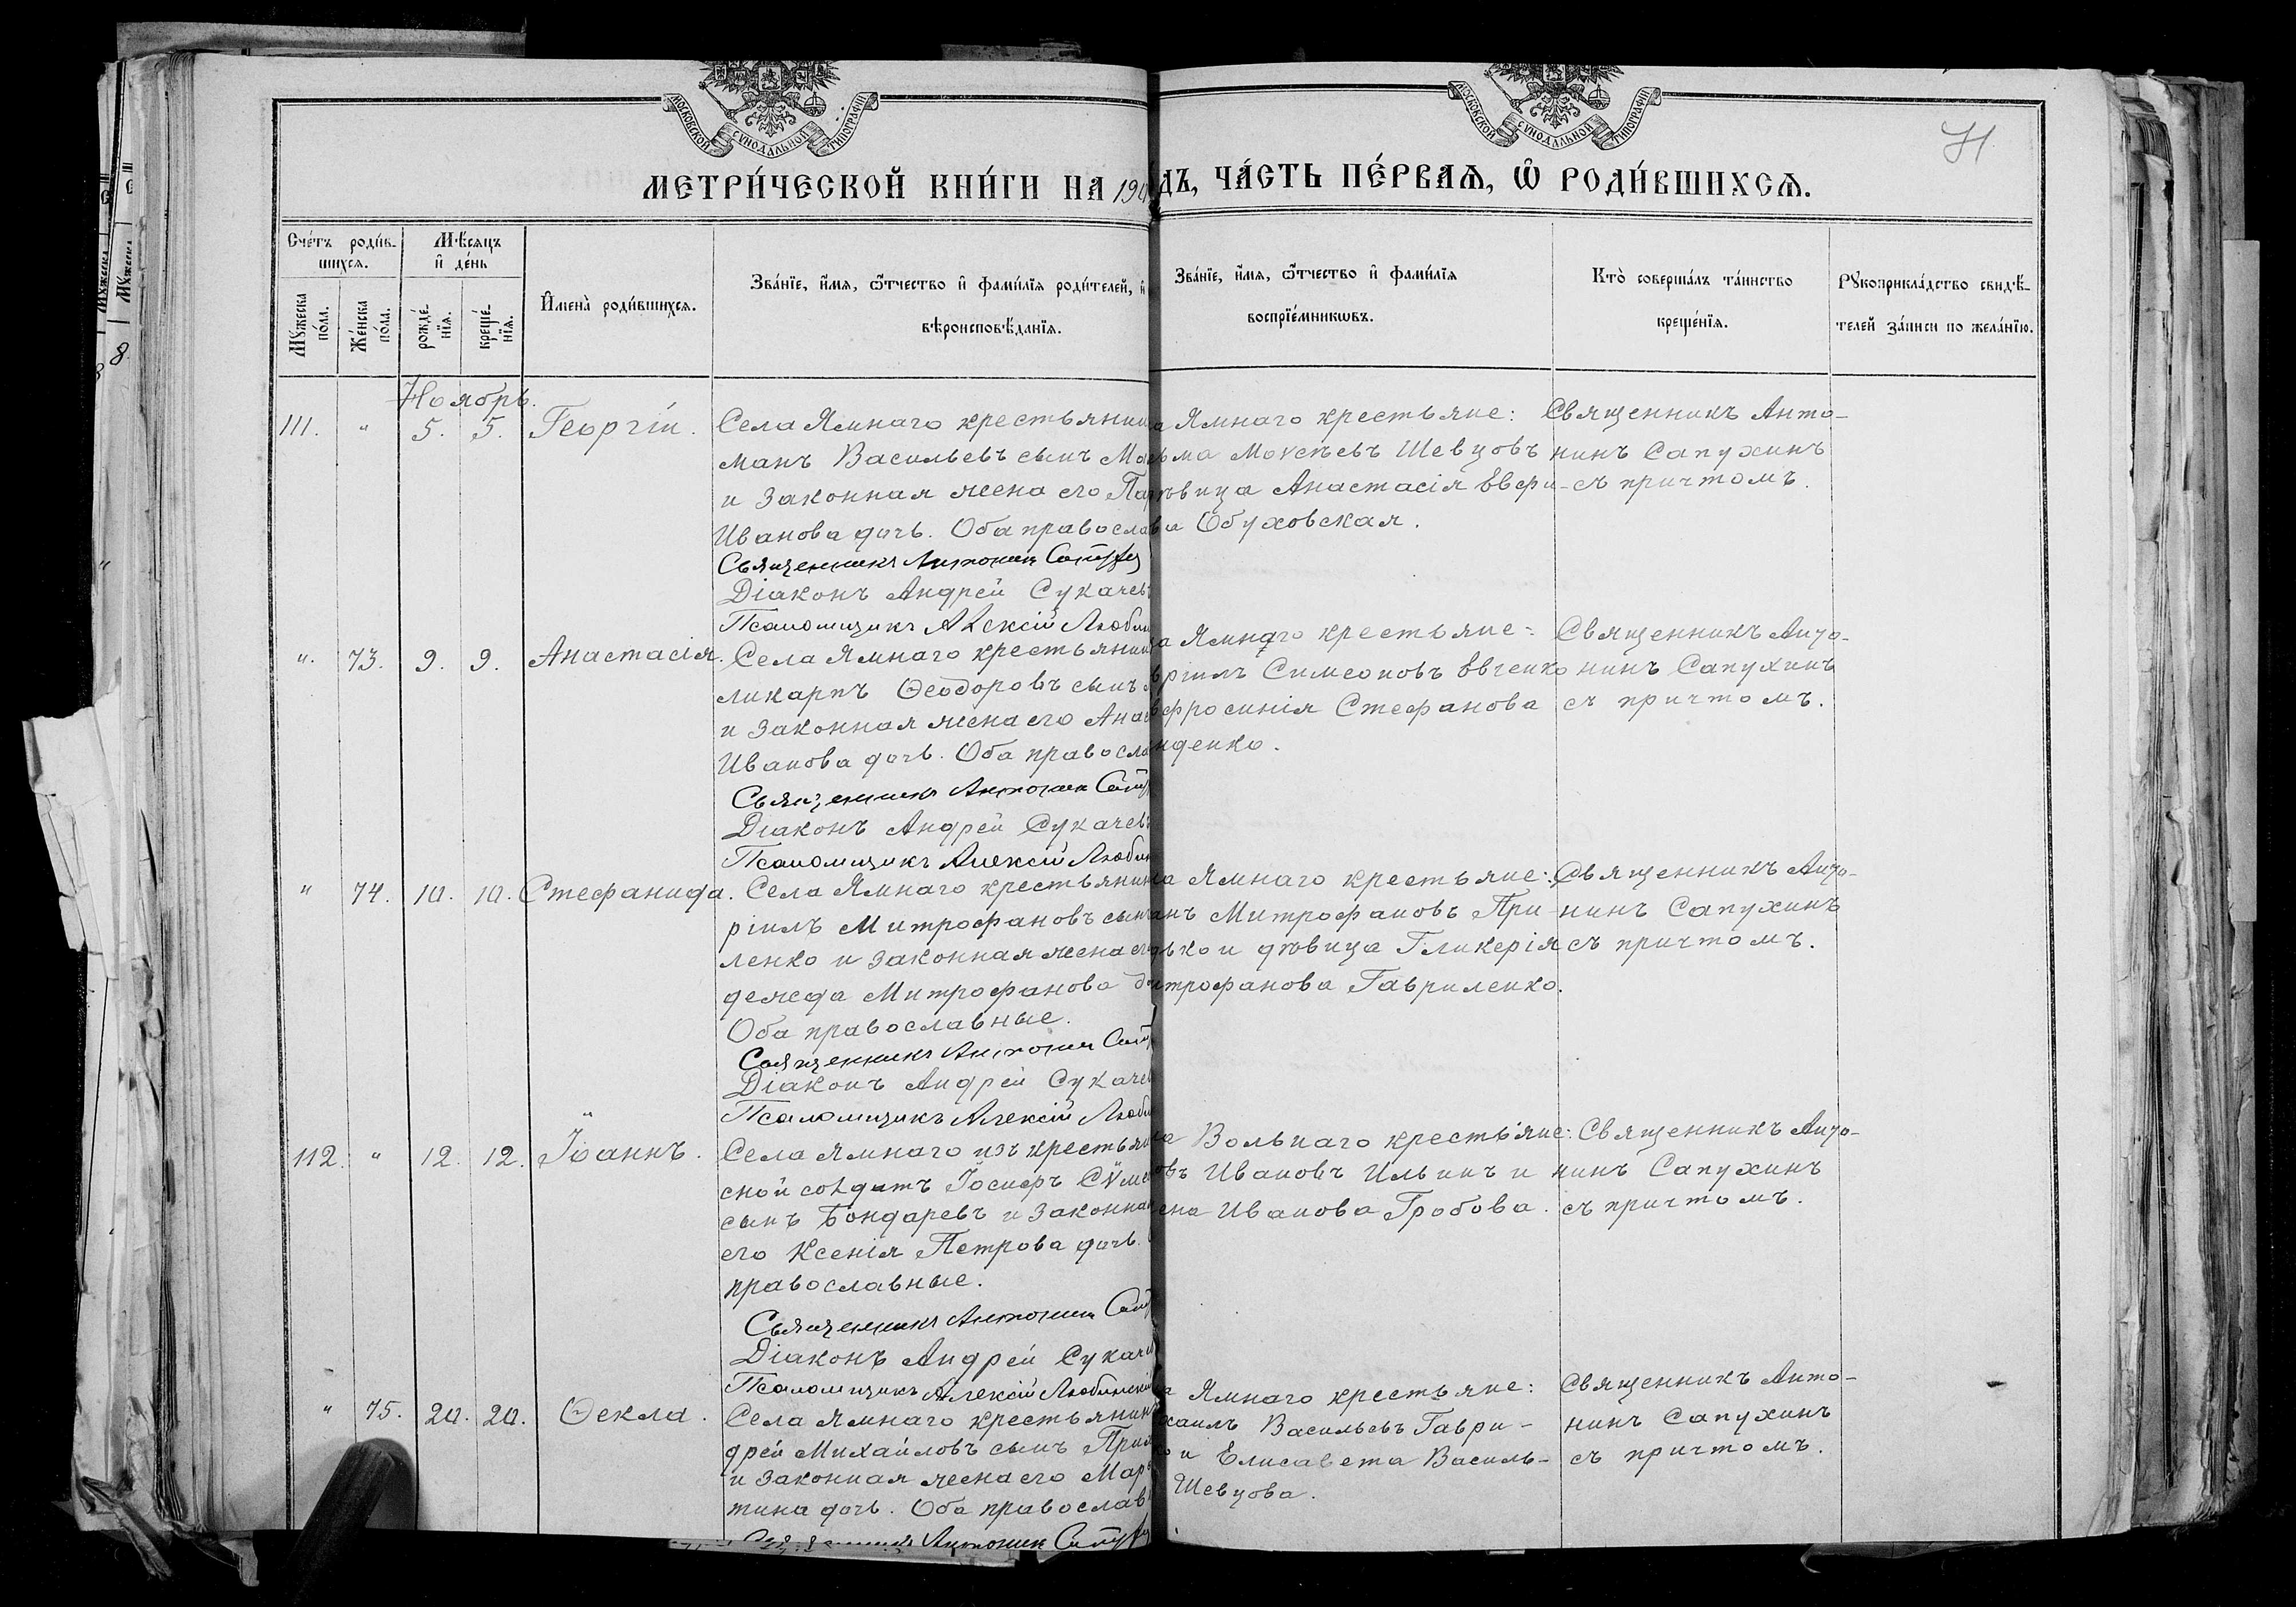 МОСКОВСКОЙ СѴНОДАЛЬНОЙ ТИПОГРАФІИ
МОСКОВСКОЙ СѴНОДАЛЬНОЙ ТИПОГРАФІИ
МЕТРИ́ЧЕСКОЙ КНИ́ГИ НА 190 ДЪ, ЧА́СТЬ ПЕ́РВАѦ, Ѿ РОДИ́ВШИХСѦ.
Сче́тъ роди́в-
шихся.
Мѣ́сяцъ
и҆ де́нь
Мꙋ́жеска по́ла.
Же́нска по́ла.
рожде́-нїя.
креще́-нїя.
И҆мена̀ роди́вшихся.
Зва́нїе, и҆́мя, ѻ҆́тчество и҆ фами́лїя роди́телей, и҆
вѣроисповѣ́данїя.
Зва́нїе, и҆́мя, ѻ҆́тчество и҆ фами́лїя
воспрїе́мниковъ.
Кто̀ соверша́лъ та́инство
креще́нїя.
Рꙋкоприкла́дство свидѣ́-
телей за́писи по жела́нїю.
Ноябрь.
111. " 5. 5. Георгій. Села Ямнаго крестьянин
манъ Васильевъ сынъ
и законная жена его
Иванова дочь. Оба правосла
Священникъ Антонин
Діаконъ Андрей Сукачевъ
Псаломщикъ Алексій Любин
а Ямнаго крестьяне:
ма Моѵсеевъ Шевцовъ
ѣвица Анастасія Евфи-
а Обуховская.
Священникъ Анто-
нинъ Сапухинъ
съ причтомъ.
". 73. 9. 9. Анастасія. Села Ямнаго крестьянин
ликарпъ Ѳеодоровъ сынъ
и законная жена его Анас
Иванова дочь. Оба правосла
Священникъ Антонин
Діаконъ Андрей Сукачевъ
Псаломщикъ Алексій Любин
а Ямнаго крестьяне:
вріилъ Симеоновъ Евченко
Ефросинія Стефанова
нденко.
Священникъ Анто-
нинъ Сапухинъ
съ причтомъ.
" 74. 10. 10. Стефанида. Села Ямнаго крестьянин
ріилъ Митрофановъ сынъ
ленко и законная жена его
дежда Митрофанова
Оба православные.
Священникъ Антонин
Діаконъ Андрей Сукаче
Псаломщикъ Алексій Люби
а Ямнаго крестьяне:
анъ Митрофановъ При-
дько и дѣвица Гликерія
трофанова Гавриленко.
Священникъ Анто-
нинъ Сапухинъ
съ причтомъ.
112. " 12. 12. Іоаннъ. Села Ямнаго изъ крестьян
сной солдатъ Іосифъ Сѵме
сынъ Бондаревъ и законная
его Ксенія Петрова дочь.
православные.
Священникъ Антонин
Діаконъ Андрей Сукаче
Псаломщикъ Алексій Любинскій
а Вольнаго крестьяне:
овъ Ивановъ Ильинъ и
ена Иванова Гробова.
Священникъ Анто-
нинъ Сапухинъ
съ причтомъ.
" 75. 20. 20. Ѳекла. Села Ямнаго крестьянин
дрей Михайловъ сынъ
и законная жена его Мар
тина дочь. Оба православ
Антонин
Ямнаго крестьяне:
хаилъ Васильевъ Гаври-
и Елисавета Василь-
Шевцова.
Священникъ Анто-
нинъ Сапухинъ
съ причтомъ.